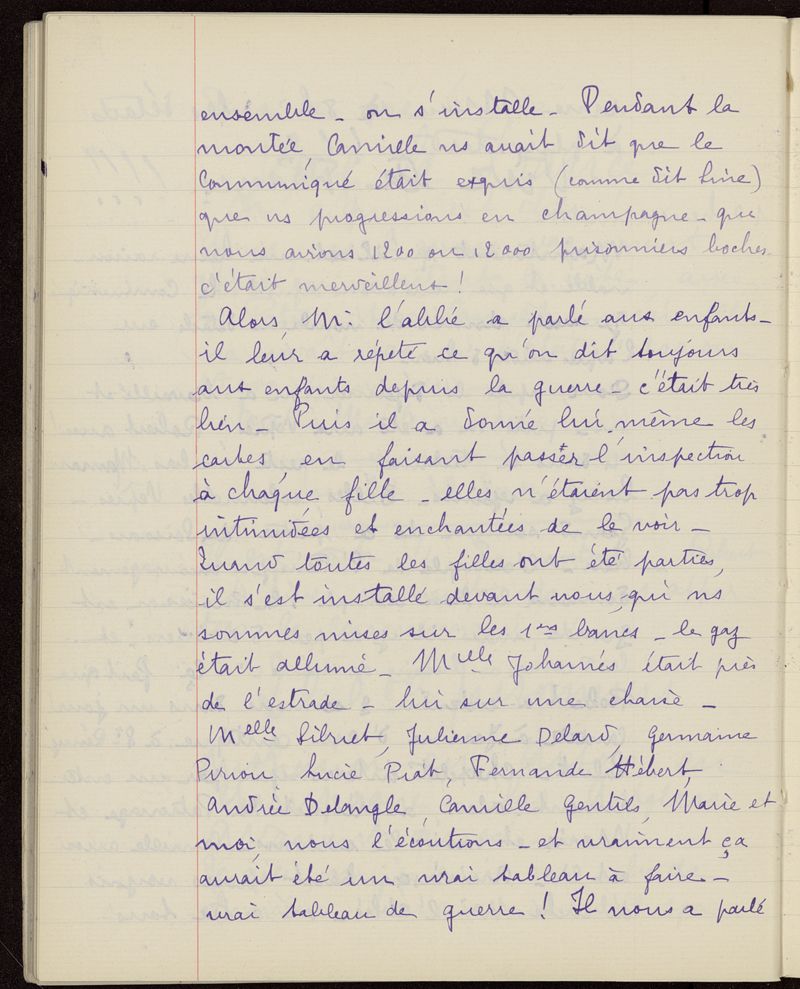 ensemble - on s'installe - Pendant la
montée, Camille ns avait dit que le
Communiqué était exquis (comme dit Line)
que ns progressions en champagne - que
nous avions 1200 ou 12000 prisonniers boches
c'était merveilleux !
Alors, Mr. l'abbé a parlé aux enfants -
il leur a répété ce qu'on dit toujours
aux enfants depuis la guerre - c'était très
bien - Puis il a donné lui-même les
cartes, en faisant passer l'inspection
à chaque fille - elles n'étaient pas trop
intimidées et enchantées de le voir -
Quand toutes les filles ont été parties,
il s'est installé devant nous, qui ns
sommes mises sur les 1ers bancs - le gaz
était allumé - Mlle Johannès était près
de l'estrade - lui sur une chaise -
Melle Julienne Delard, Germaine
Piriou, Lucie Piat, Fernande Hébert,
Andrée Delangle, Camille Gentils, Marie et
moi, nous l'écoutions - et vraiment ça
aurait été un vrai tableau à faire -
vrai tableau de guerre ! Il nous a parlé